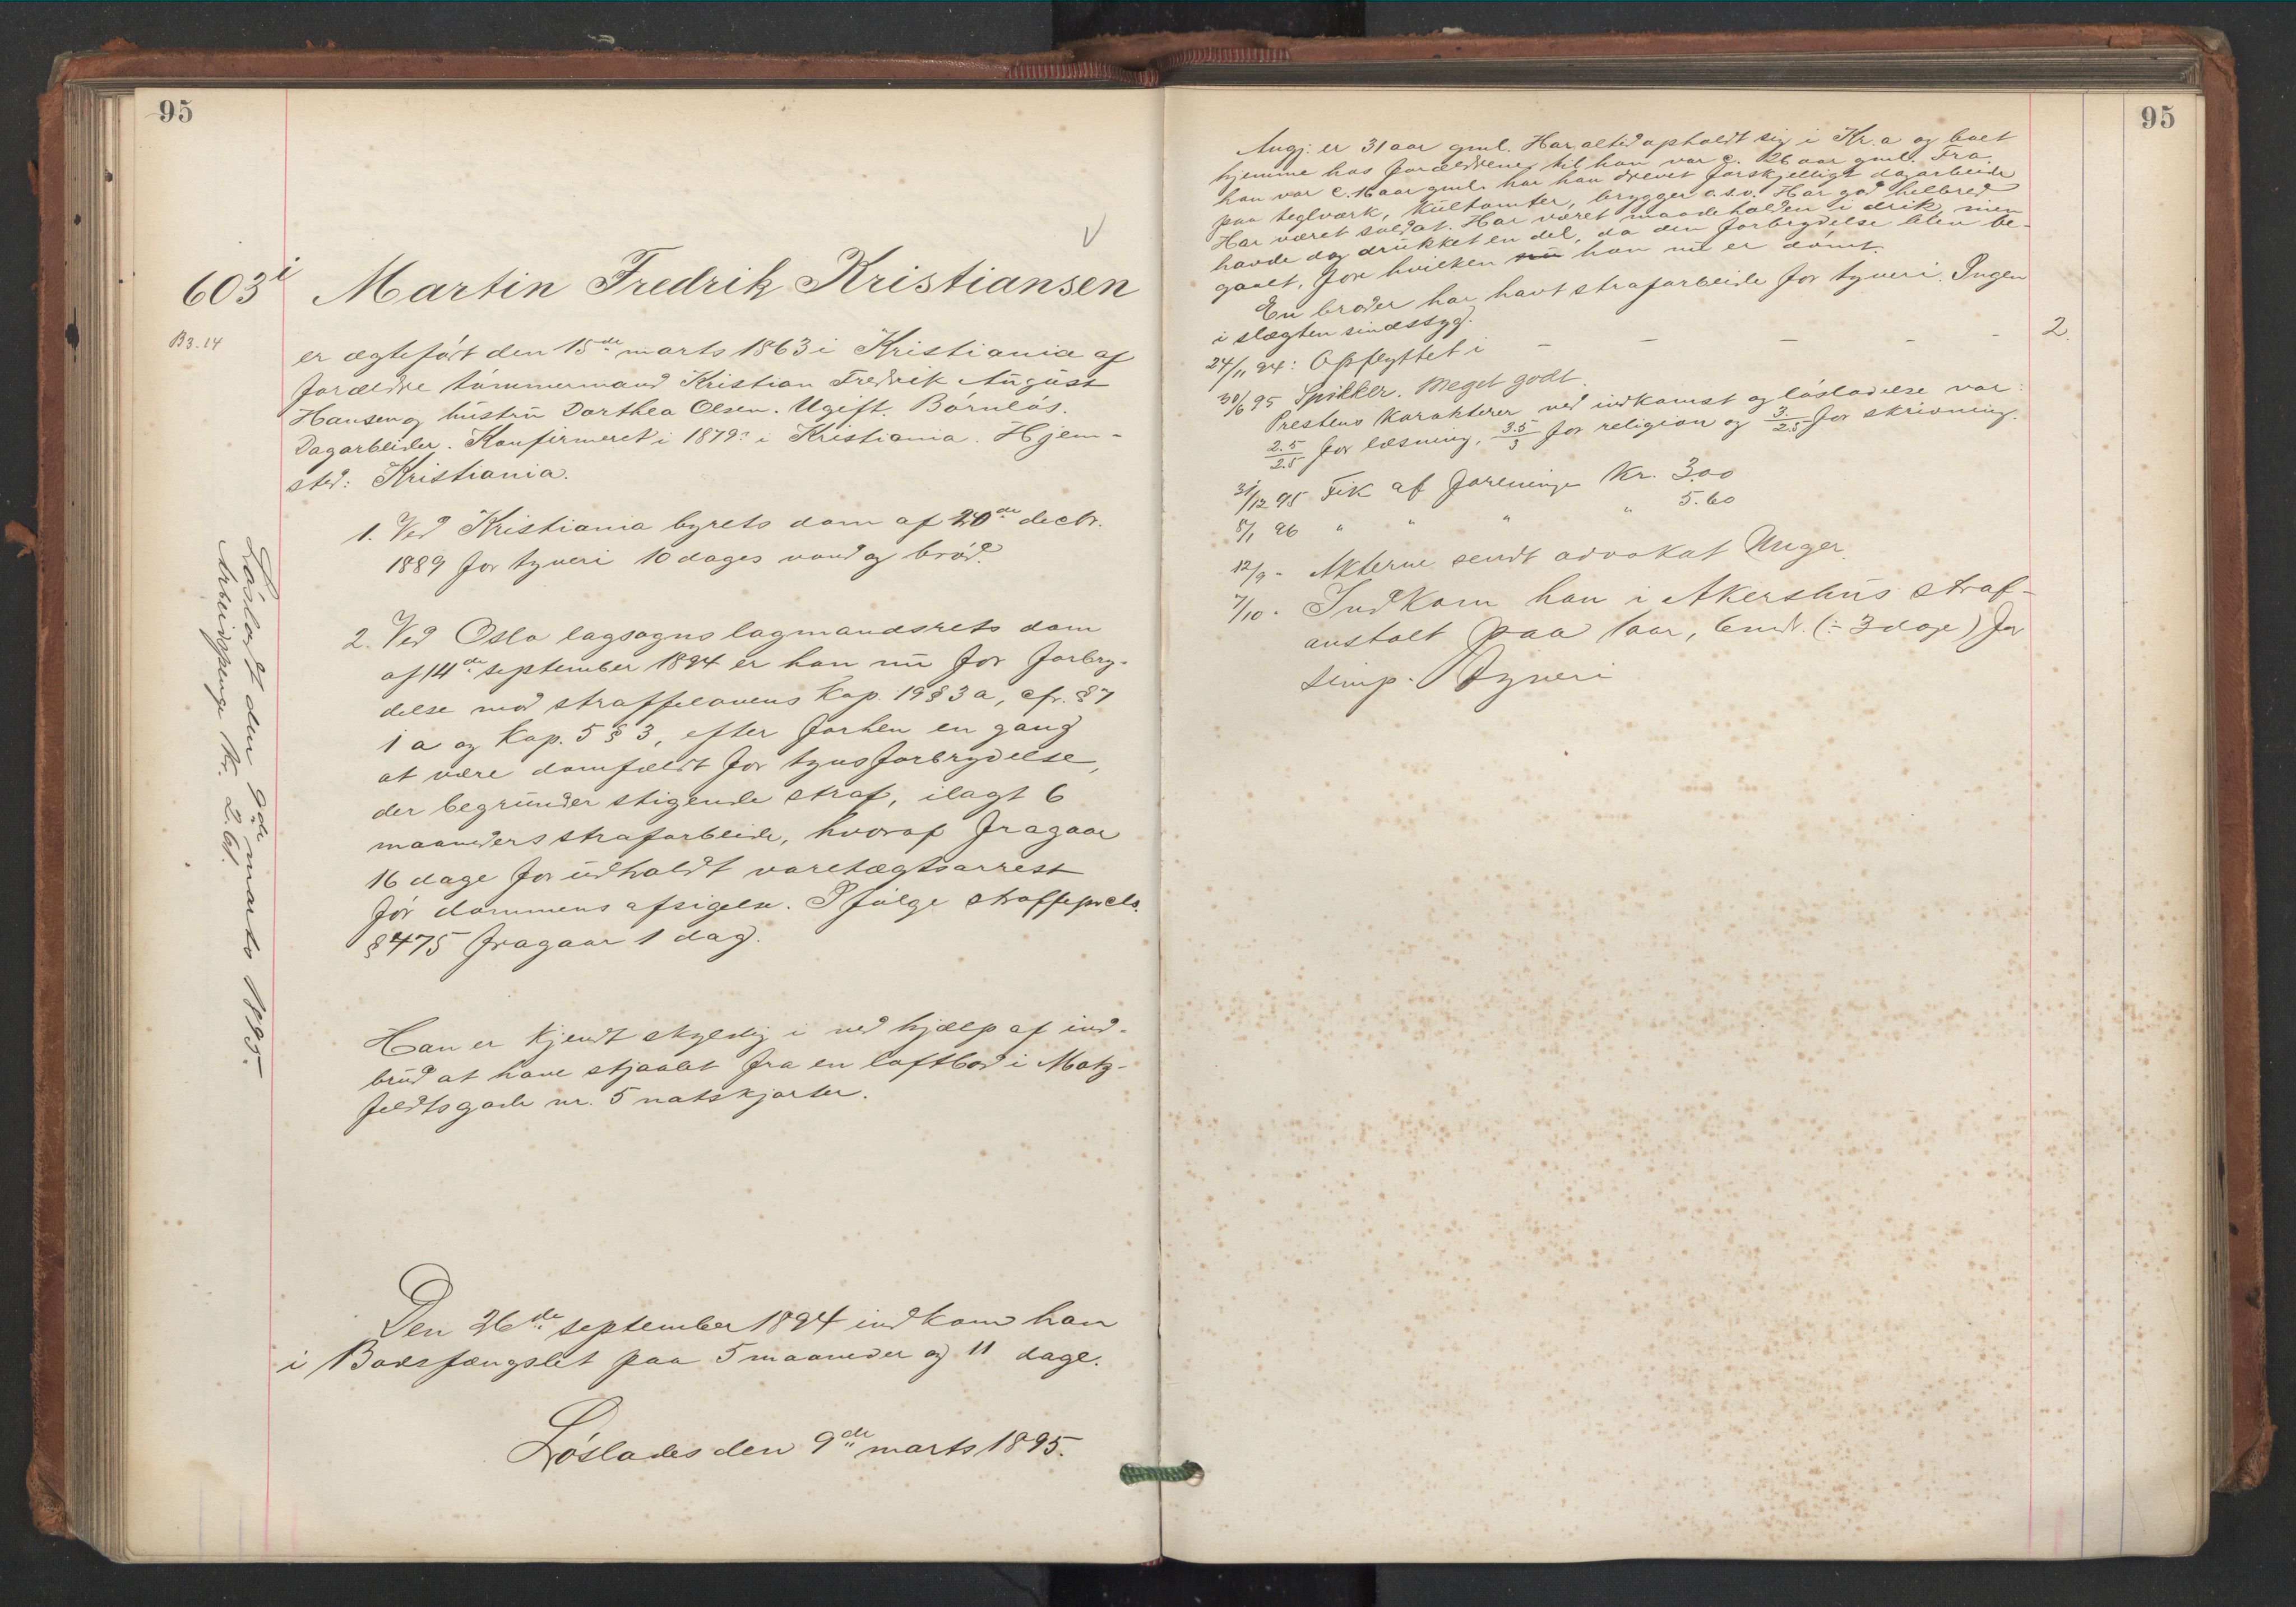 95
603 i Martin Fredrik Kristiansen
B3.14
er ægtefödt den 15de marts 1863 i Kristiania af
forældre tömmermand Kristian Fredrik August
Hansen og hustru Dorthea Olsen. Ugift. Börnlös.
Dagarbeider. Konfirmeret i 1879 i Kristiania. Hjem-
sted: Kristiania.
1. Ved Kristiania byrets dom af 20de decbr.
1889 for tyveri 10 dages vand og bröd.
2. Ved Oslo lagsogns lagmandsrets dom
af 14de september 1894 er han nu for forbry-
delse mod straffelovens Kap. 19 § 3 a, cfr. § 7
1 a og Kap. 5 § 3, efter forhen en gang
at være domfældt for tyvsforbrydelse,
der begrunder stigende straf, ilagt 6
maaneders strafarbeide, hvoraf fragaar
16 dage for udholdt varetægtsarrest
för dommens afsigelse. I fölge straffeprcls.
§ 475 fragaar 1 dag.
Han er kjendt skyldig i ved hjælp af ind-
brud at have stjaalet fra en loftbod i Motz-
feldtsgade nr. 5 natskjorter.
Den 26de september 1894 indkom han
i Bodsfængslet paa 5 maaneder og 11 dage.
Löslades den 9de marts 1895.
Lösladt den 9de marts 1895.
Arbeidspenge Kr. 2.61.
95
Angj. er 31 aar gml. Har altid opholdt sig i Kr.a og boet
hjemme hos forældrene, til han var c. 26 aar gml. Fra
han var c. 16 aar gml. har han drevet forskjelligt dagarbeide
paa teglværk, Kultomter, brygger o.s.v. Har god helbred
Har været soldat. Har været maadeholden i drik, men
havde dog drukket en del, da den forbrydelse blev be-
gaaet, for hvilken han nu er dömt.
En broder har havt strafarbeide for tyveri. Ingen
i slægten sindssyg.
24/11 94: Opflyttet i - - - - - 2.
30/6 95 Spikker. Meget godt.
Prestens Karakterer ved indkomst og lösladelse var:
2.5/2.5 for læsning, 3.5/3 for religion og 3./2.5 for skrivning.
31/12 95 Fik af foreninge Kr. 3.00
8/1 96 " " " " 5.60
12/9 - Akterne sendt advokat Unger.
7/10 - Indkom han i Akershus straf-
anstalt paa 1 aar, 6 mdr. (÷ 3 dage) for
simp. Tyveri